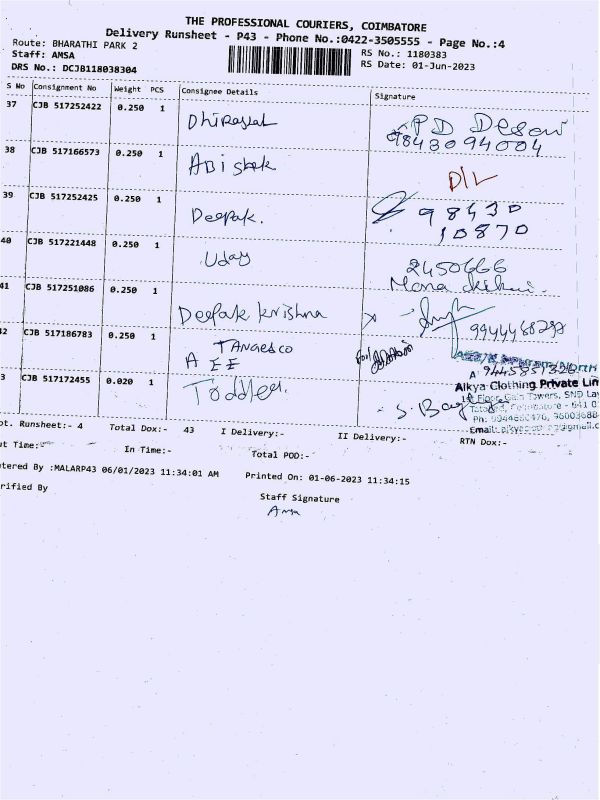 THE PROFESSIONAL COURIERS, COIMBATORE
Delivery Runsheet - P43 - Phone No.:0422-3505555 - Page No.:4
Route: BHARATHI PARK 2
RS No.: 1180383
Staff: AMSA
RS Date: 01-Jun-2023
DRS No.: DCJB118038304
S No Consignment No Weight PCS Consignee Details Signature
37 CJB 517252422 0.250 1 Dhirajlal PD Desai
9843094004
38 CJB 517166573 0.250 1 Abishek D/L
39 CJB 517252425 0.250 1 Deepak. 98430
10870
40 CJB 517221448 0.250 1 Uday 2450666
41 CJB 517251086 0.250 1 Deepak Krishna 9944468292
42 CJB 517186783 0.250 1 TANGESCO
AEE
9445851320
3 CJB 517172455 0.020 1 Toddler.
Alkya Clothing Private Lim
Floor, Towers, SND Lay
Coimbatore - 641 0
ot. Runsheet:- 4 Total Dox:- 43 I Delivery:- II Delivery:- RTN Dox:-
ut Time:- In Time:- Total POD:-
tered By :MALARP43 06/01/2023 11:34:01 AM Printed On: 01-06-2023 11:34:15
rified By
Staff Signature